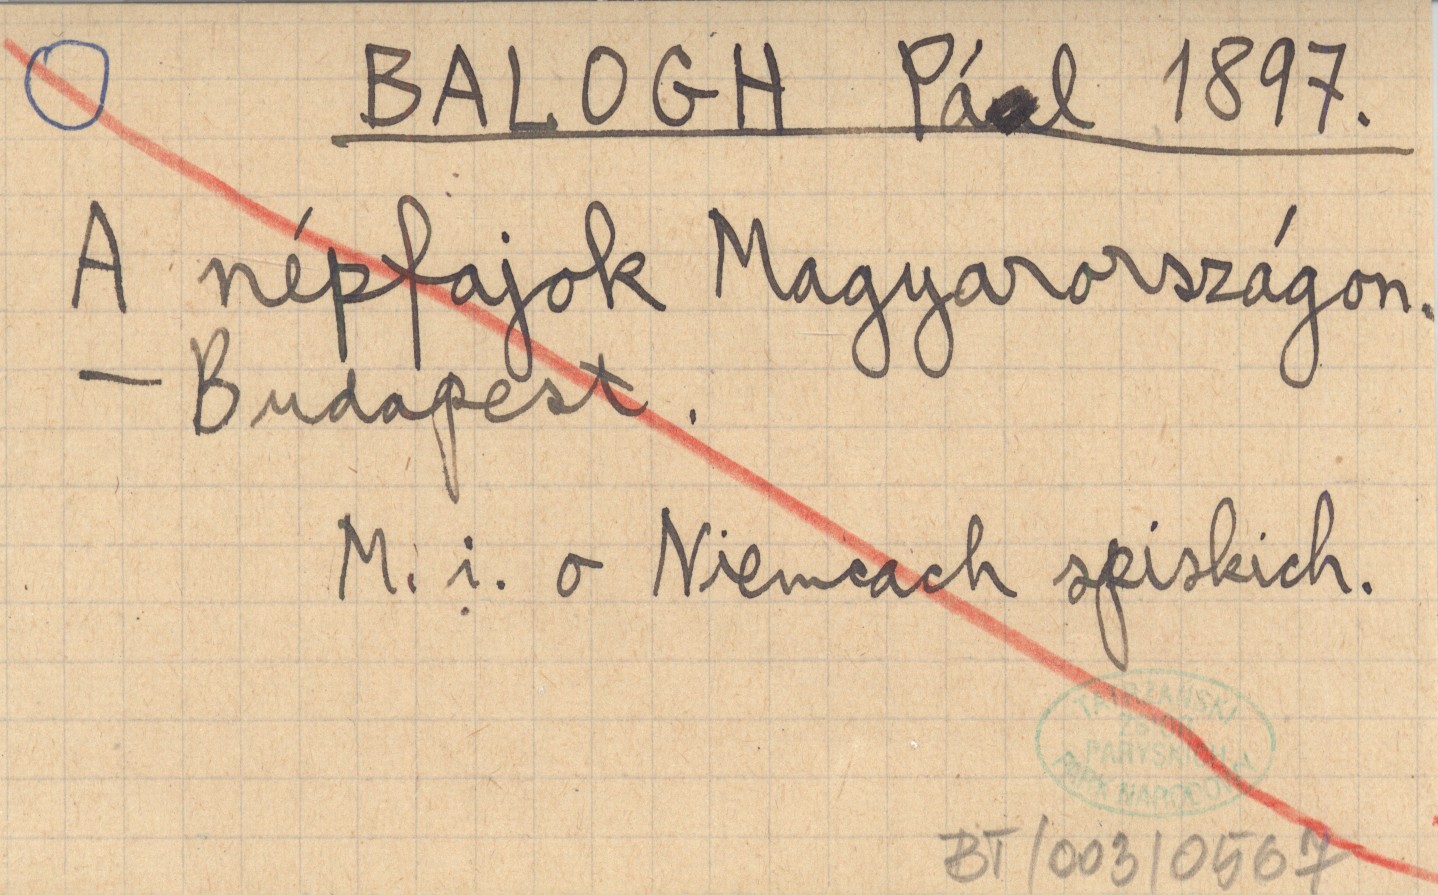 BALOGH Pál 1897.
A népfajok Magyarországon.
— Budapest.
M. i. o Niemcach spiskich.
TATRZAŃSKI
PARYSKICH
PARK NARODOWY
BT/003/0567